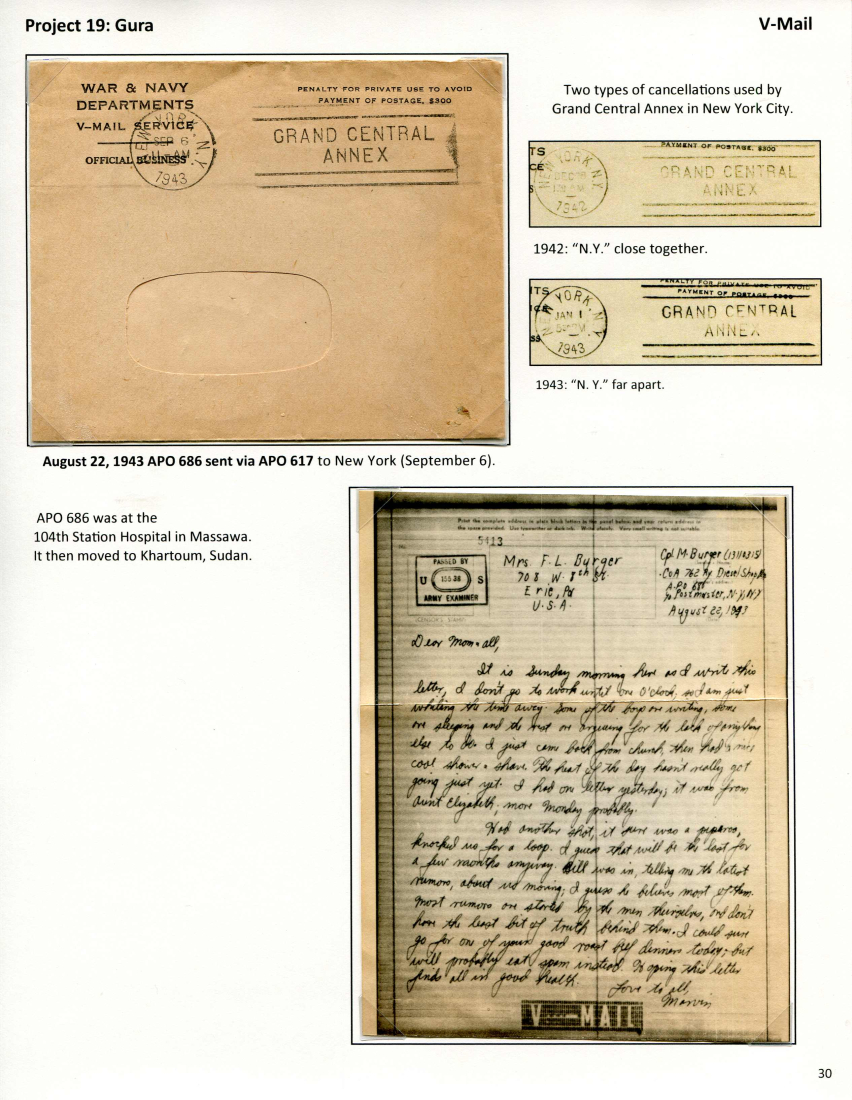 Project 19: Gura
V-Mail
WAR & NAVY
DEPARTMENTS
V-MAIL SERVICE
OFFICIAL BUSINESS
PENALTY FOR PRIVATE USE TO AVOID
PAYMENT OF POSTAGE, $300
NEW YORK, N.Y.
SEP 6
AM
1943
GRAND CENTRAL
ANNEX
Two types of cancellations used by
Grand Central Annex in New York City.
TS
CE
S
PAYMENT OF POSTAGE, $300
NEW YORK N.Y.
DEC
1942
GRAND CENTRAL
ANNEX
1942: “N.Y.” close together.
ITS
PENALTY FOR PRIVATE USE TO AVOID
PAYMENT OF POSTAGE, $300
NEW YORK N.Y.
JAN 1
1943
GRAND CENTRAL
ANNEX
1943: “N. Y.” far apart.
August 22, 1943 APO 686 sent via APO 617 to New York (September 6).
APO 686 was at the
104th Station Hospital in Massawa.
It then moved to Khartoum, Sudan.
Print the complete address in plain block letters in the panel below, and your return address in
the space provided. Use typewriter or dark ink. Write plainly. Very small writing is not suitable.
5413
PASSED BY
U S
ARMY EXAMINER
Mrs. F. L. Burger
708 W. 8th St.
Erie, Pa
U.S.A.
Cpl M. Burger
Co A 762 Ry Diesel Shop
A.P.O 686
% Postmaster, N.Y., N.Y
August 22, 1943
Dear Mom & all,
It is Sunday morning here as I write this
letter, I don't go to work until one O'clock, so I am just
whiling the time away. Some of the boys are writing, some
are sleeping and the rest are arguing for the lack of anything
else to do. I just came back from church, then had a nice
cool shower & shave. The heat of the day hasn't really got
going just yet. I had one letter yesterday; it was from
Aunt Elizabeth, more Monday probably.
Had another shot, it sure was a
knocked us for a loop. I guess that will be the last for
a few months anyway. Bill was in, telling me the latest
rumors, about us moving; I guess he believes most of them.
Most rumors are started by the men themselves, and don't
have the least bit of truth behind them. I could sure
go for one of your good roast beef dinners today, but
will probably eat spam instead. Hoping this letter
finds all in good health.
Love to all,
Marvin
V---MAIL
30